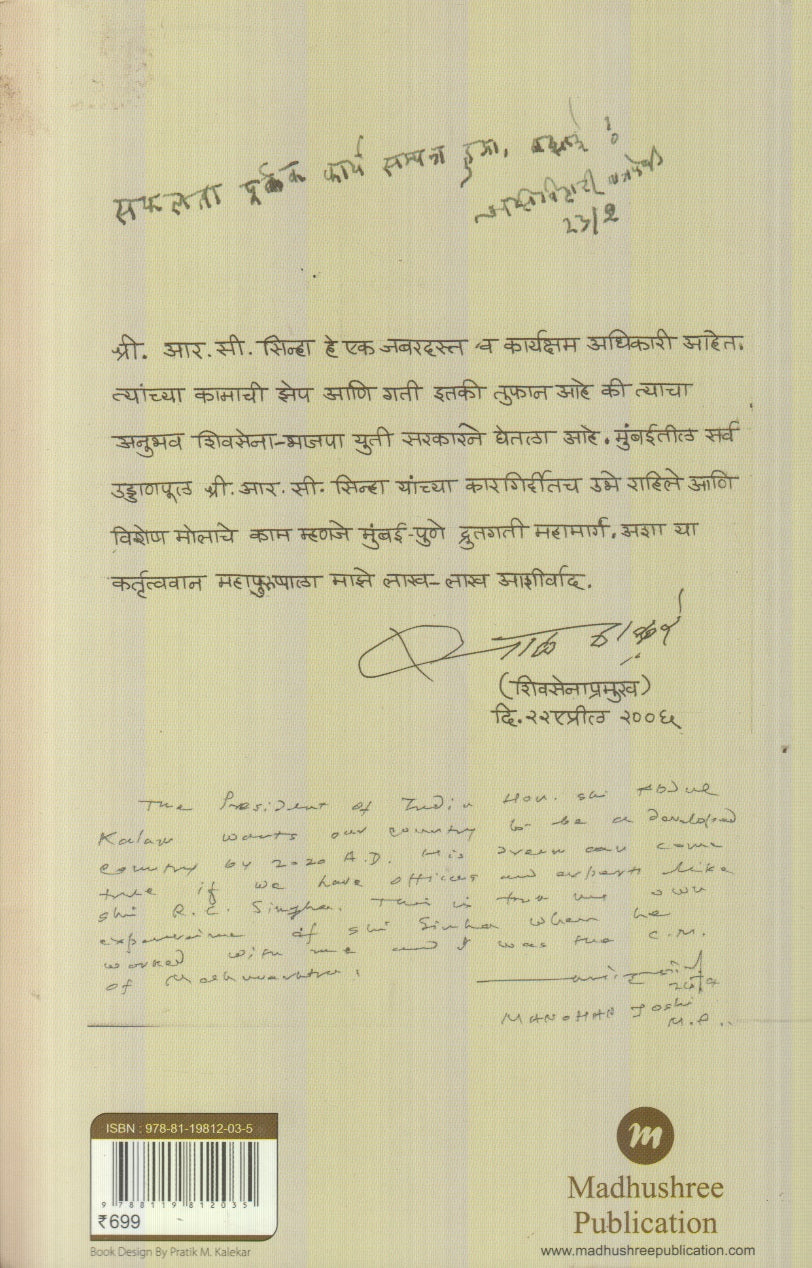 सफलता पूर्वक कार्य सम्पन्न हुआ, बधाई !
अटल बिहारी वाजपेयी
23/2
श्री. आर.सी. सिन्हा हे एक जबरदस्त व कार्यक्षम अधिकारी आहेत.
त्यांच्या कामाची झेप आणि गती इतकी तुफान आहे की त्याचा
अनुभव शिवसेना-भाजपा युती सरकारने घेतला आहे. मुंबईतील सर्व
उड्डाणपूल श्री. आर. सी. सिन्हा यांच्या कारगिर्दीतच उभे राहिले आणि
विशेण मोलाचे काम म्हणजे मुंबई-पुणे द्रुतगती महामार्ग. अशा या
कर्तृत्ववान महापुरुषाला माझे लाख-लाख आशीर्वाद.
बाळ ठाकरे
(शिवसेनाप्रमुख)
दि. २२एप्रील २००६
The President of India Hon. Shri Abdul
Kalam wants our country to be a developed
country by 2020 A.D. His dream can come
true if we have officers and experts like
Shri R.C. Singha. This is true my own
experience of Shri Sinha when he
worked with me and I was the C.M.
of Maharashtra.
MANOHAR JOSHI
M.P.
ISBN : 978-81-19812-03-5
9 788119 812035
₹699
Book Design By Pratik M. Kalekar
m
Madhushree
Publication
www.madhushreepublication.com